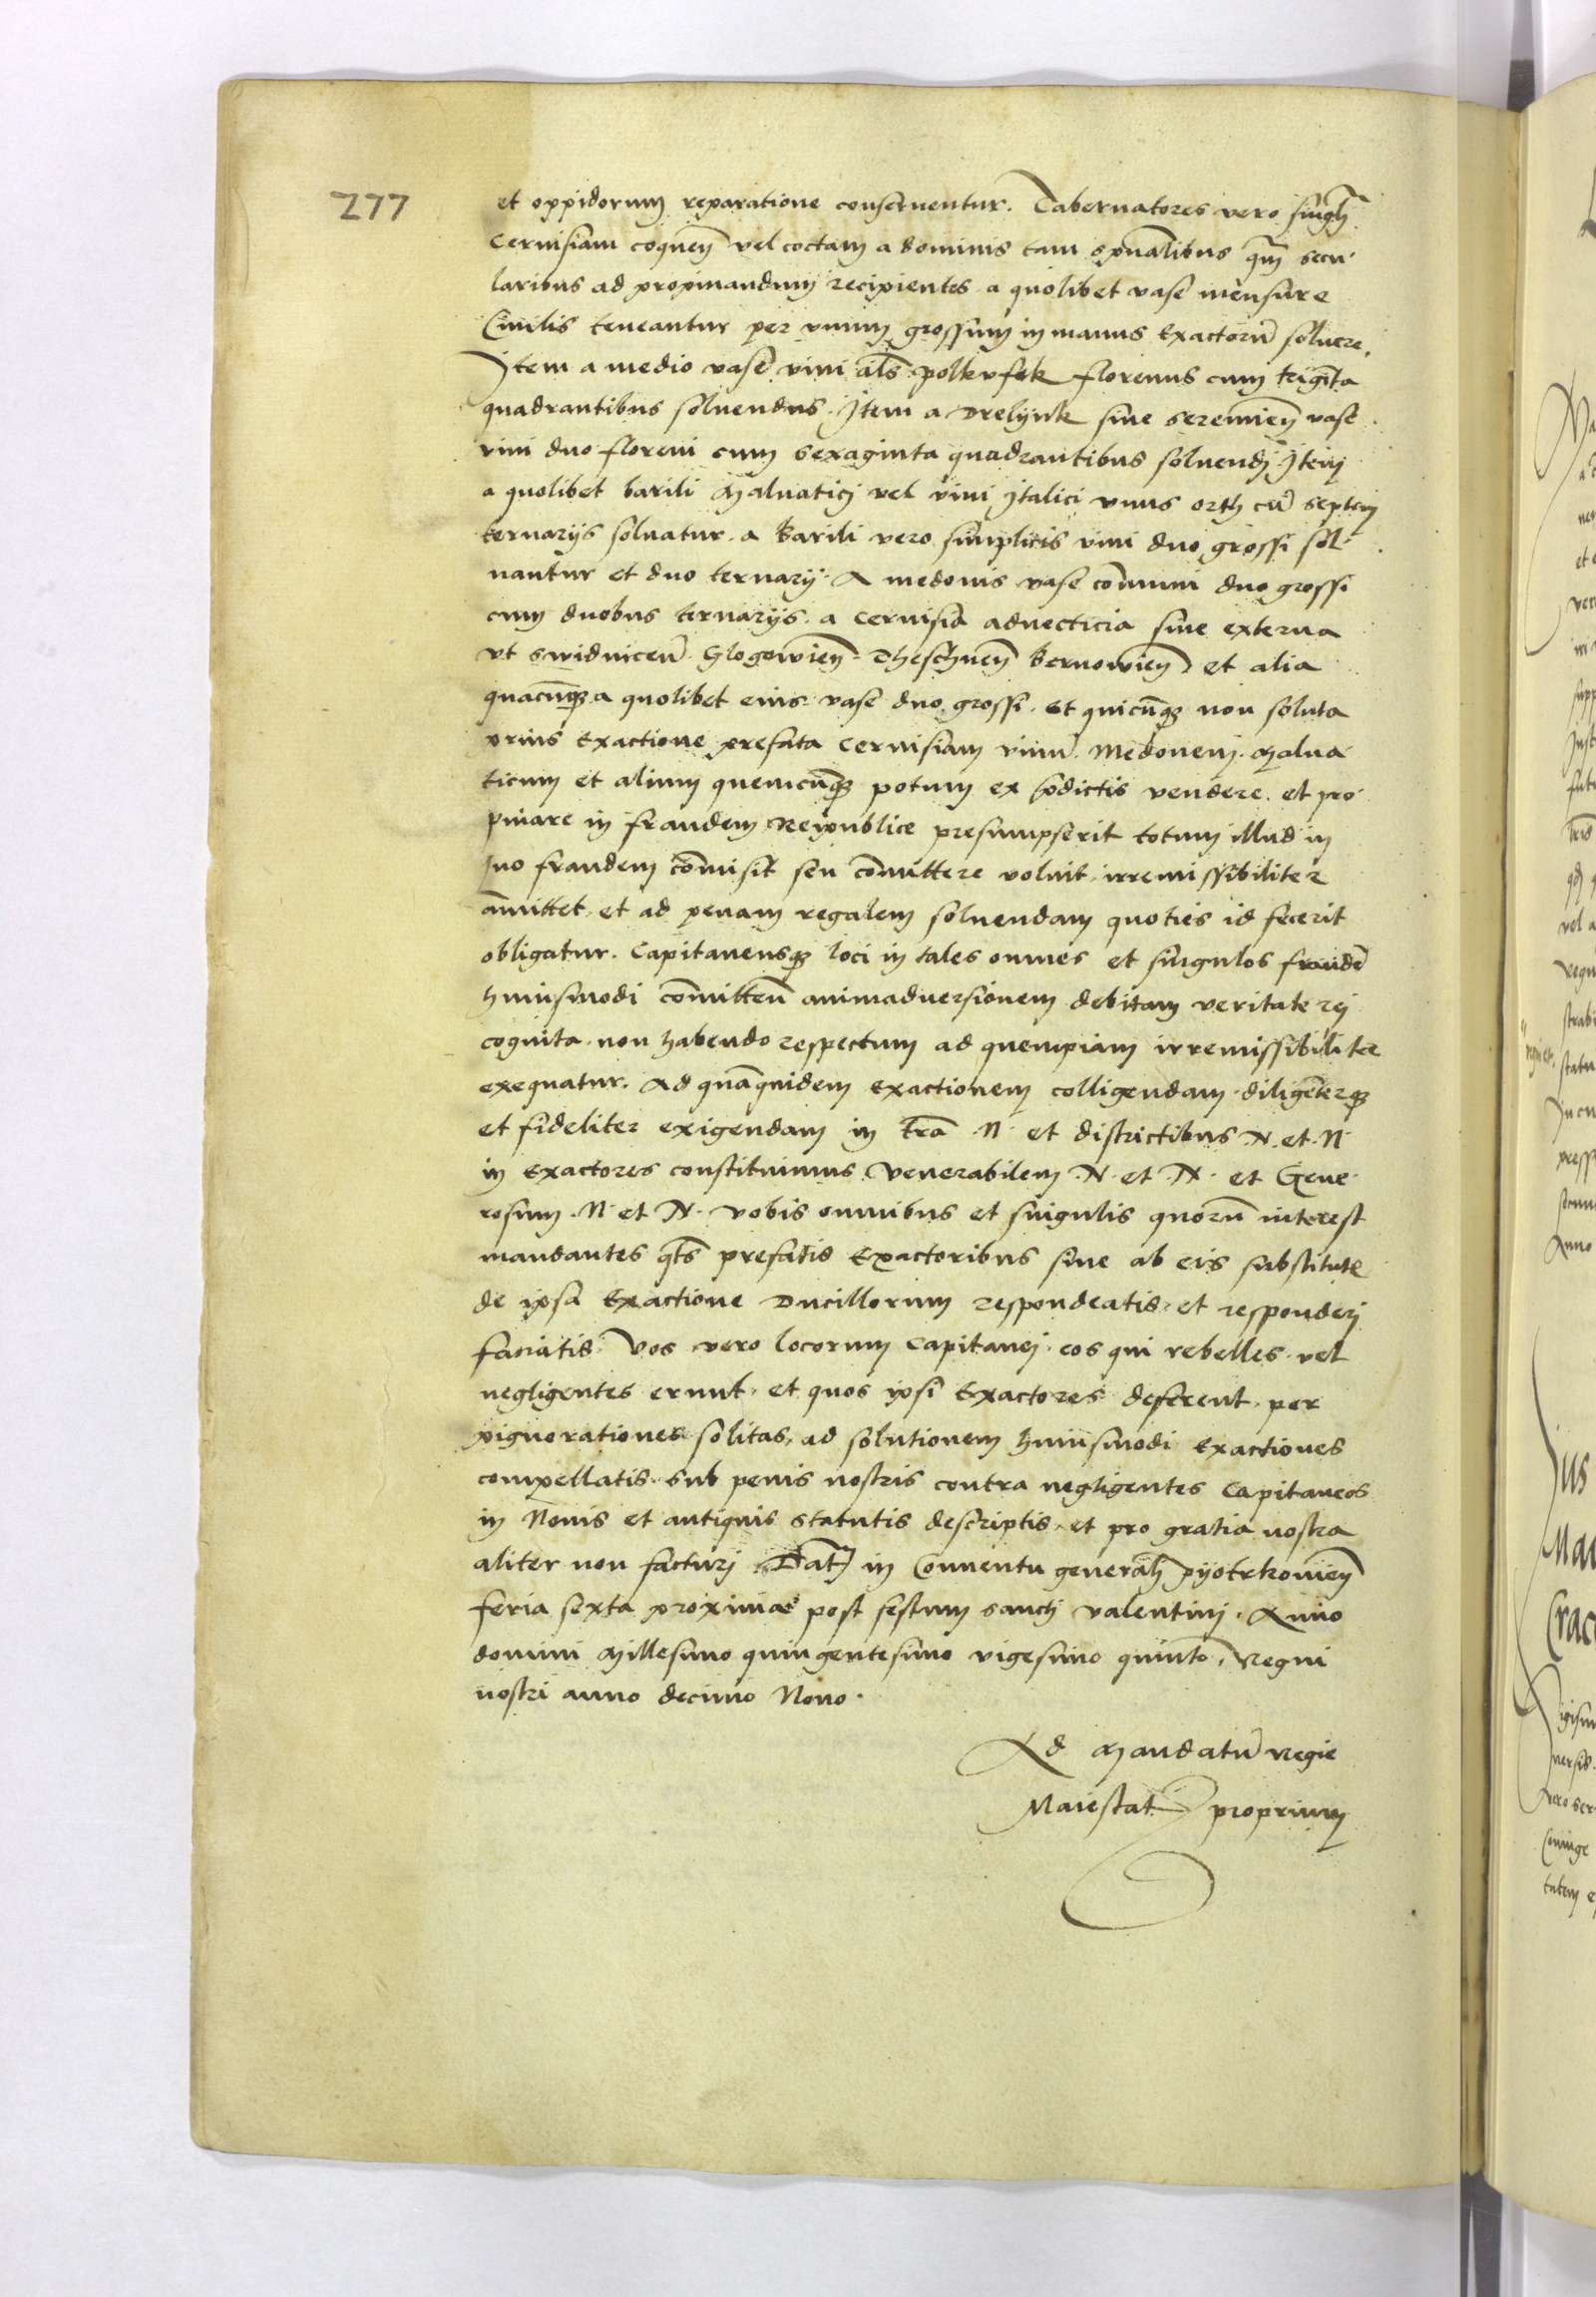 277
et oppidorum reparatione conseruentur. Tabernatores vero singlȷ̄
Ceruisiam coquen̄ vel coctam a dominis tam sp̄ualibus qm̄ secu
laribus ad propinandum recipientes a quolibet vase mensure
Ciuilis teneantur per vnum grossum in manus Exactorū soluere.
Item a medio vase vini als̄ polkufek florenus cum trigīta
quadrantibus soluendus. Item a Drelijnk siue seremien̄ vase
vini duo floreni cum sexaginta quadrantibus soluendj Item
a quolibet barili Maluaticj vel vini Italici vnus orth cū septem
ternarijs soluatur. a barili vero simplicis vini duo grossi sol
uantur et duo ternarij. A medonis vase com̄uni duo grossi
cum duobus ternarijs. a Ceruisia aduecticia siue externa
vt swidnicen̄. Glogowien̄. Dheschnen̄ Bernowien̄ et alia
quacūqȝ a quolibet eius vase duo grossi. Et quicūqȝ non soluta
prius Exactione prefata Ceruisiam vinū. Medonem. Malua
ticum et alium quemcūqȝ potum ex p̄dictis vendere. et pro
pinare in fraudem Reipublice presumpserit totum illud in
quo fraudem com̄isit seu com̄ittere voluit irremissibiliter
am̄ittet et ad penam regalem soluendam quoties id fecerit
obligatur. Capitaneusqȝ loci in tales omnes et singulos fraudē
huiusmodi com̄itten̄ animaduersionem debitam veritate rej
cognita non habendo respectum ad quempiam irremissibiliter
exequatur. Ad quāquidem exactionem colligendam diligēterqȝ
et fideliter exigendam in trā .N. et districtibus .N. et .N.
in Exactores constituimus Venerabilem .N. et .N. et Gene
rosum .N. et .N. vobis omnibus et singulis quorū interest
mandantes qts̄ prefatis Exactoribus siue ab eis substitutis
de ipsa Exactione Ducillorum respondeatis et responderj
faciatis. Vos vero locorum Capitanej eos qui rebelles vel
negligentes erunt et quos ipsi Exactores deferent per
pignorationes solitas ad solutionem huiusmodi Exactiones
compellatis sub penis nostris contra negligentes Capitaneos
in Nouis et antiquis statutis descriptis et pro gratia nostra
aliter non facturj Dat̄ in Conuentu generalj pyotrkowien̄
feria sexta proxima post festum sanctj valentinj. Anno
domini Millesimo quingentesimo vigesimo quinto. Regni
nostri anno decimo Nono.
Ad Mandatū Regie
Maiestat̄ proprium